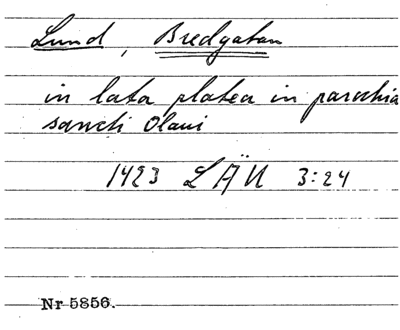 Lund, Bredgatan
in lata platea in parochia
sancti Olaui
1423 LÄU 3:24
Nr 5856.